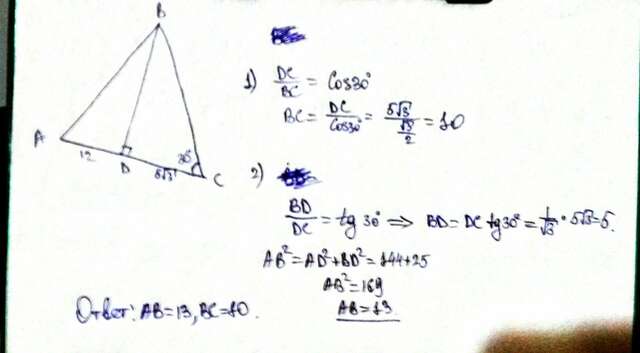 B
A
12
D
5√3
30°
C
1) DC/BC = Cos30°
BC = DC/Cos30° = 5√3/(√3/2) = 10
2)
BD/DC = tg 30° ⟹ BD = DC tg30° = 1/√3 · 5√3 = 5.
AB² = AD² + BD² = 144+25
AB² = 169
AB = 13
Ответ: AB = 13, BC = 10.